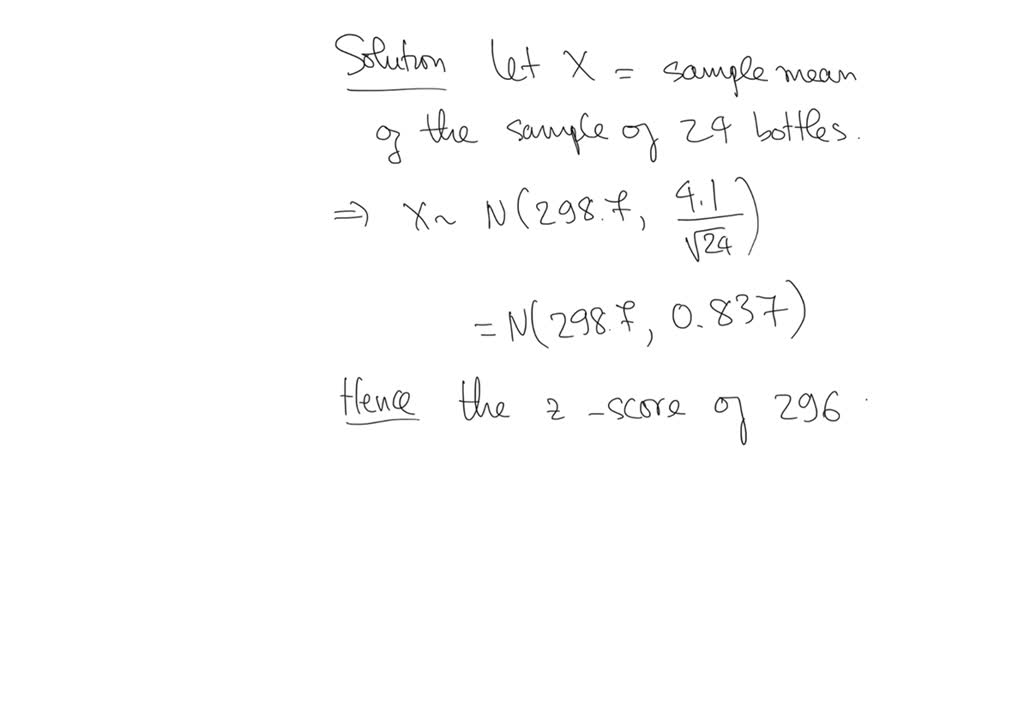 Solution let X = sample mean
of the sample of 24 bottles.
⇒ X ~ N(298.7, 4.1/√24)
= N(298.7, 0.837)
Hence the z-score of 296